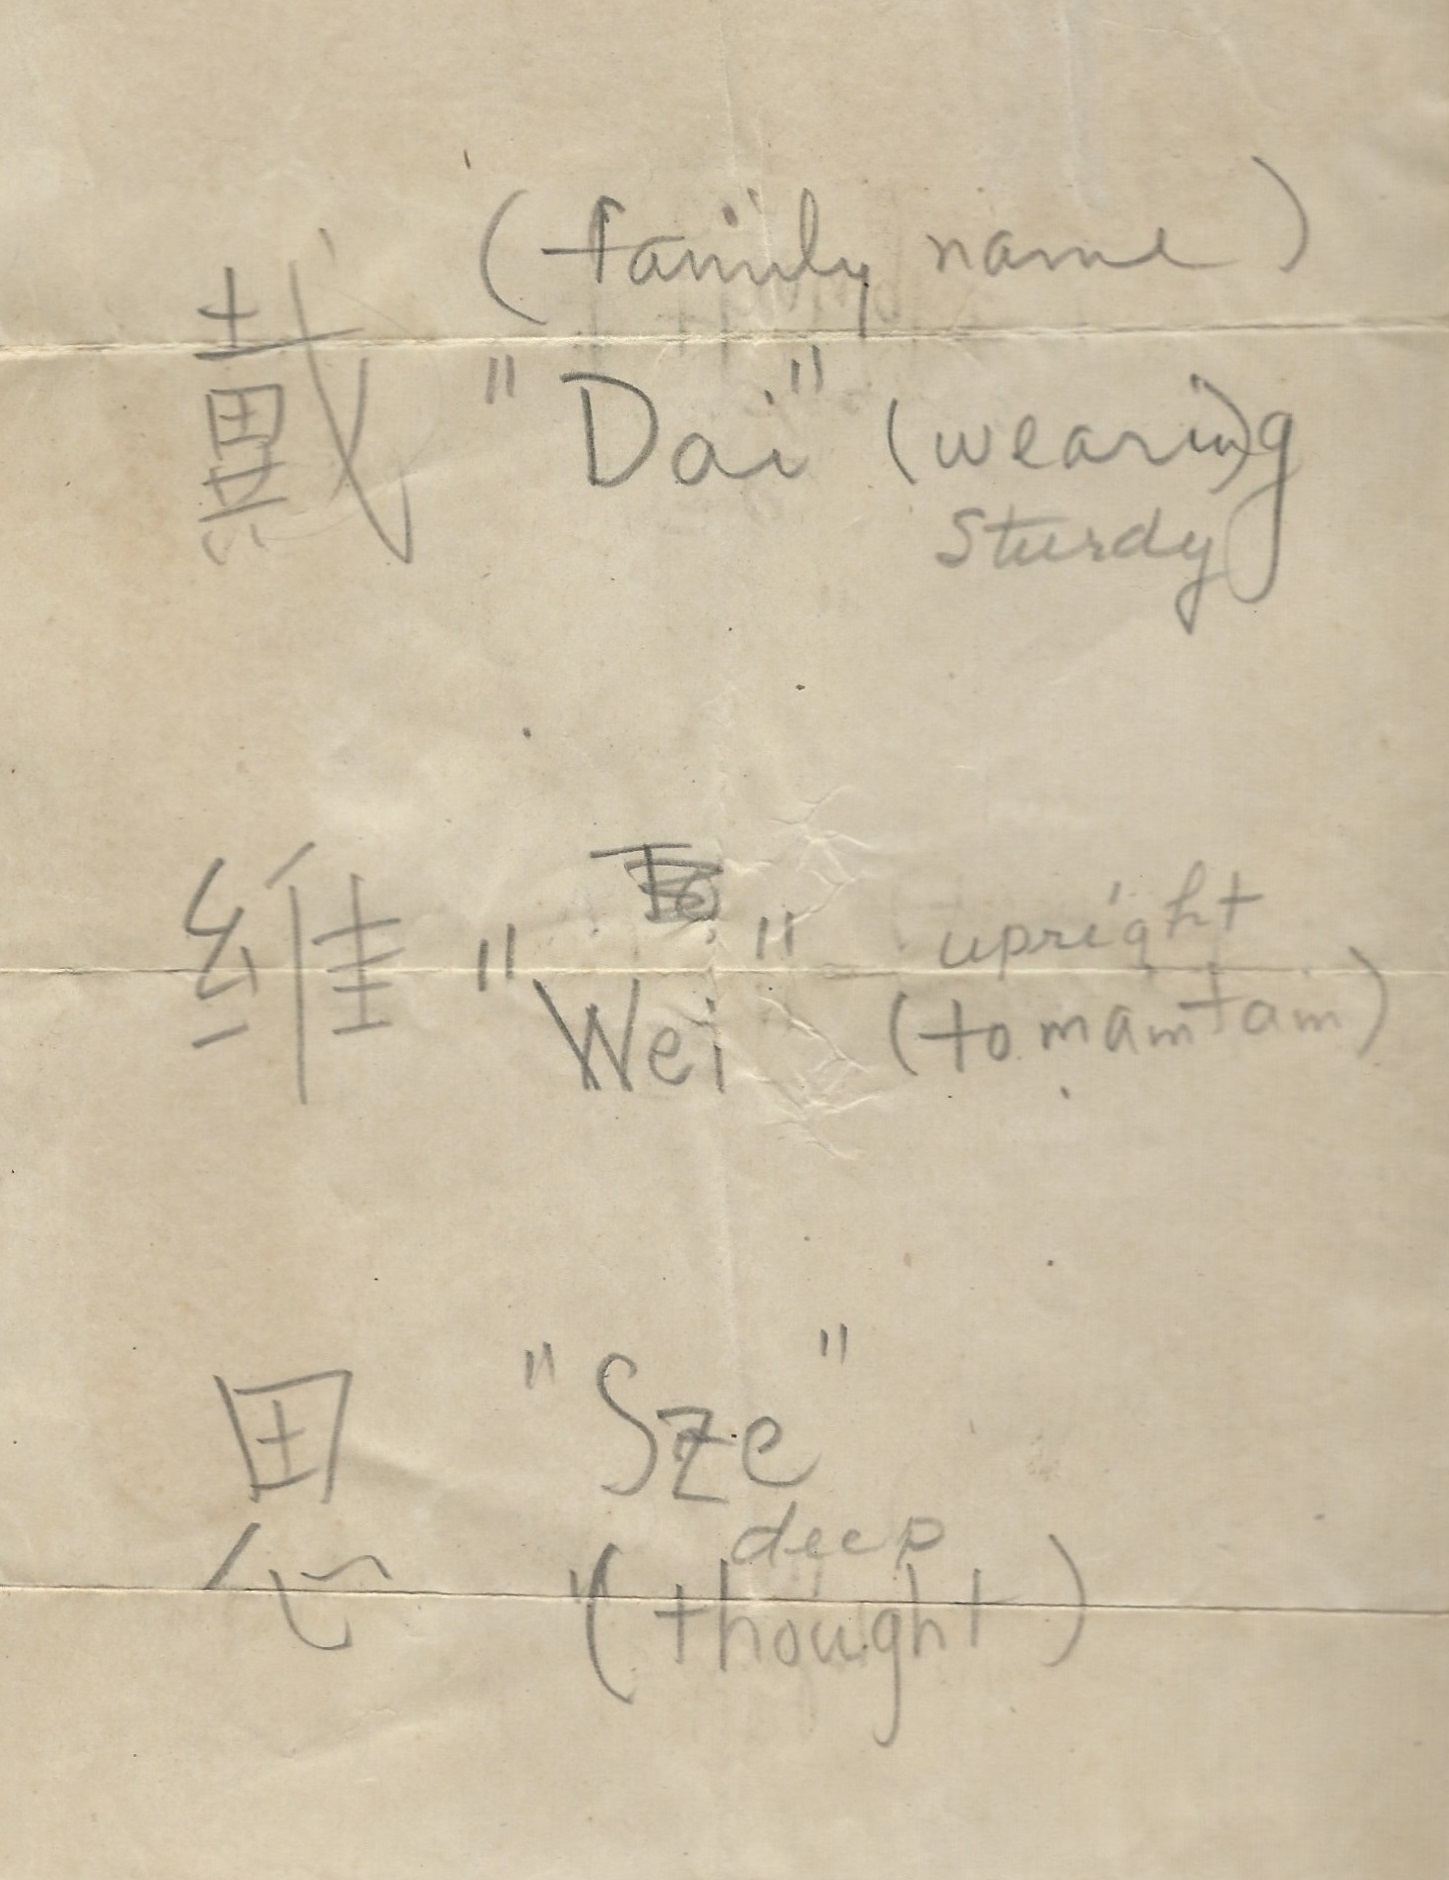 (family name)
戴 "Dai" (wearing)
sturdy
upright
維 "Wei" (to maintain)
思 "Sze"
deep
(thought)